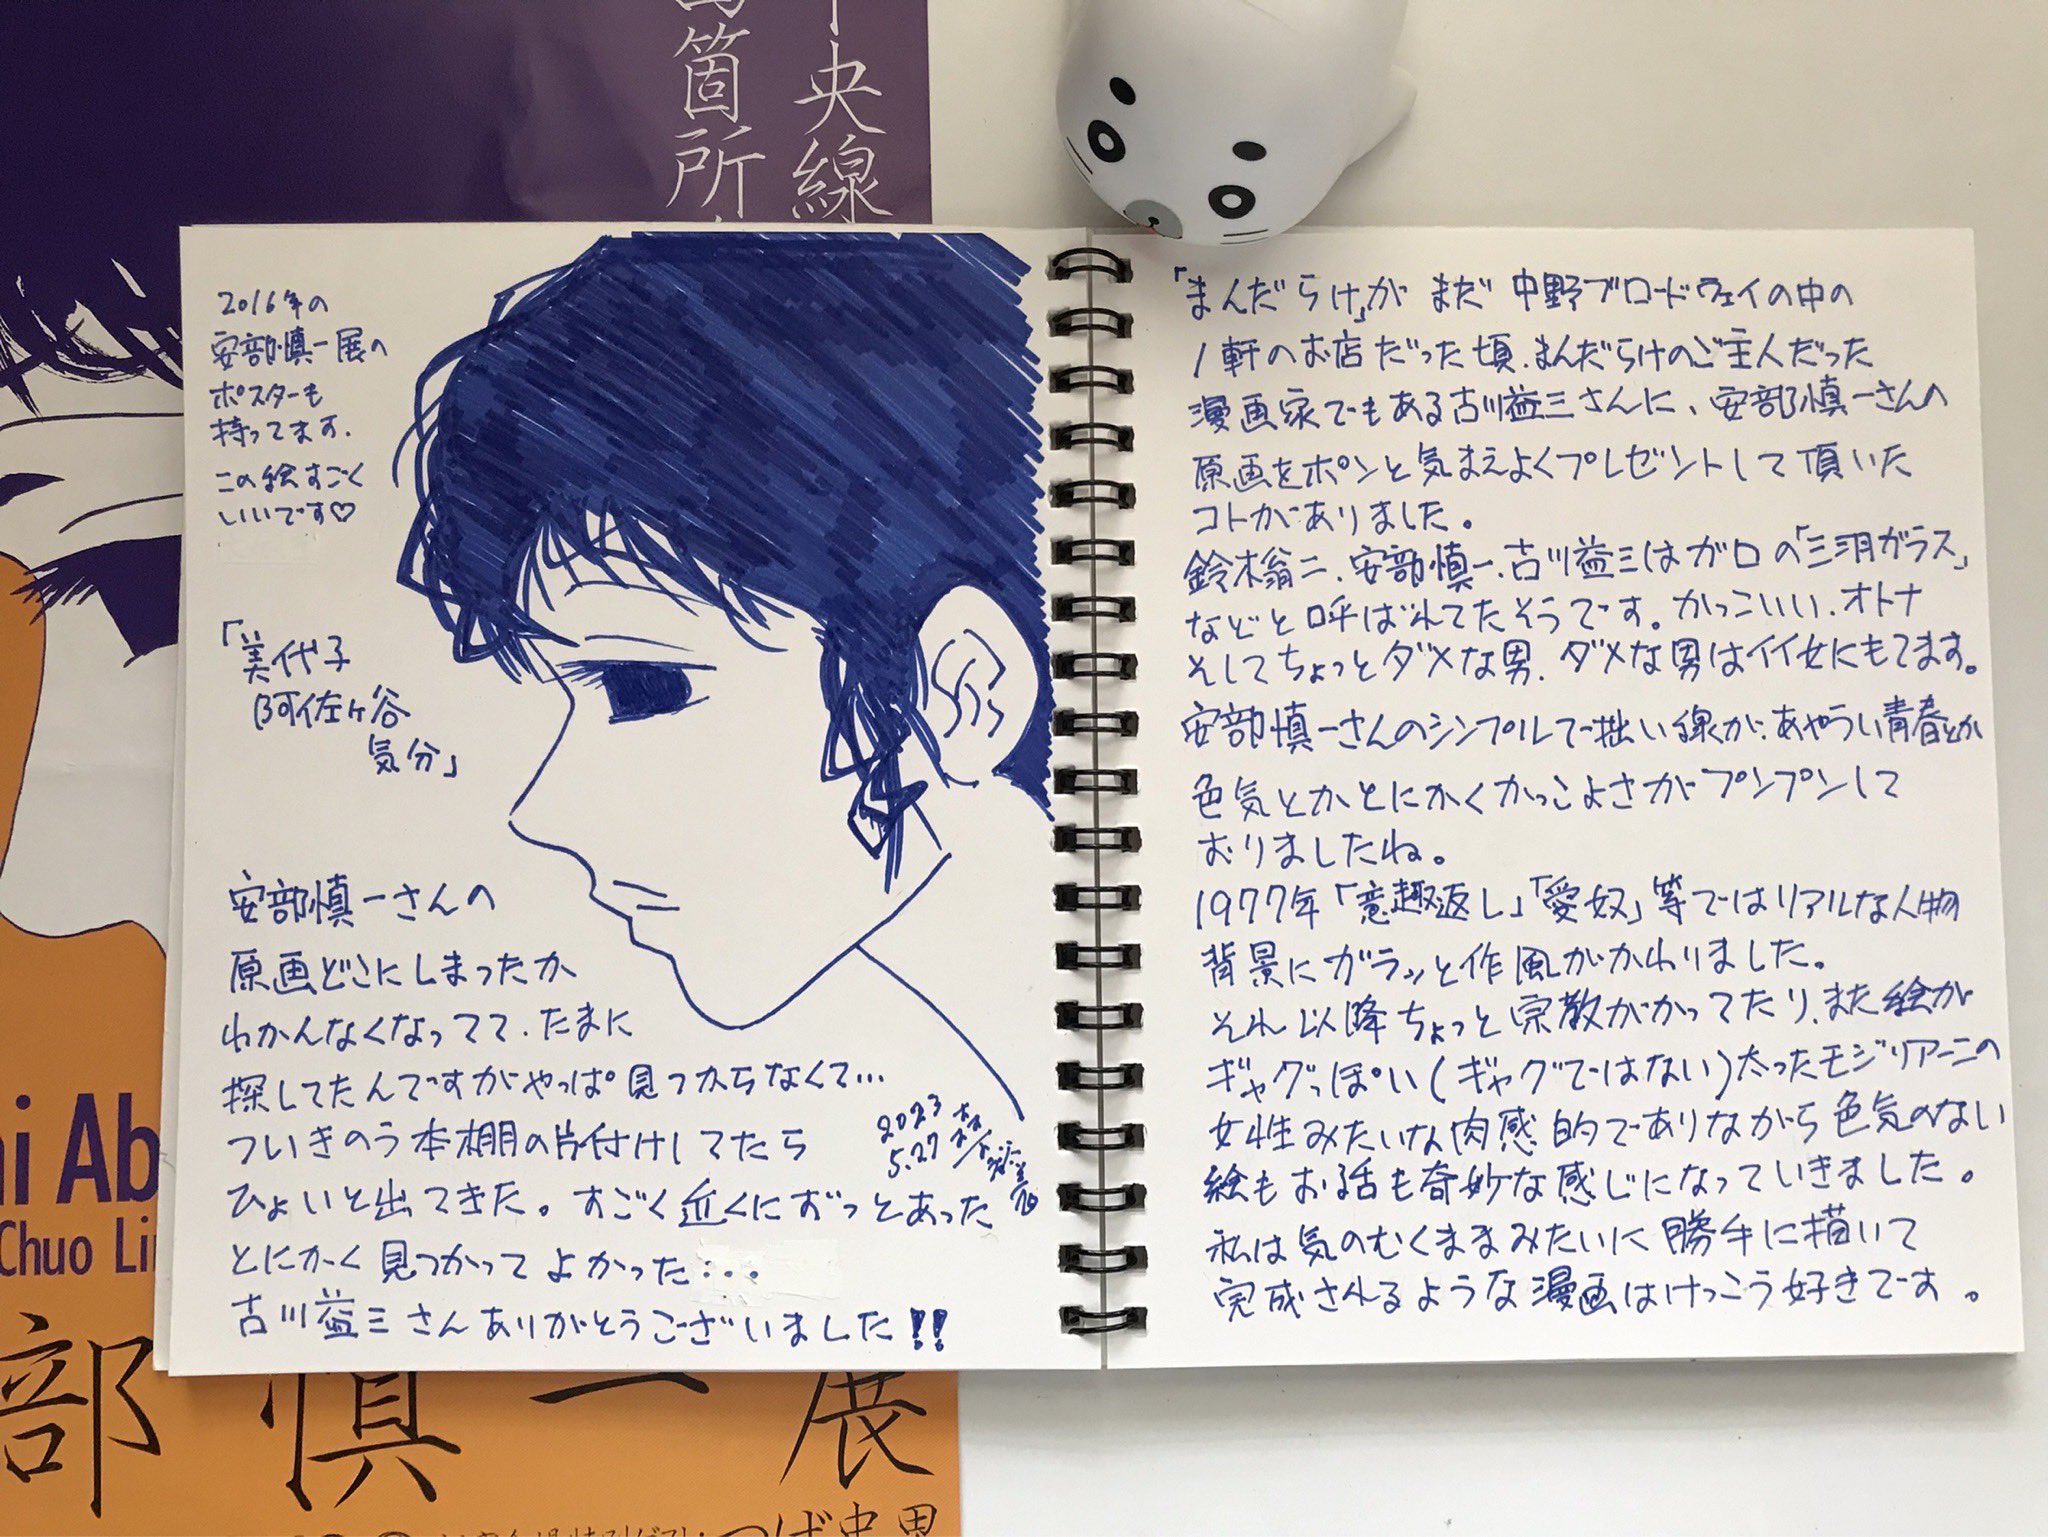 中央線
箇所
2016年の
安部慎一展の
ポスターも
持ってます.
この絵すごく
いいです♡
「美代子
阿佐ヶ谷
気分」
安部慎一さんの
原画どこにしまったか
わかんなくなってて.たまに
探してたんですがやっぱ見つからなくて…
ついきのう本棚の片付けしてたら
ひょいと出てきた。すごく近くにずっとあった
とにかく見つかってよかった…
古川益三さんありがとうございました!!
2023
5.27
「まんだらけ」がまだ中野ブロードウェイの中の
1軒のお店だった頃.まんだらけのご主人だった
漫画家でもある古川益三さんに、安部慎一さんの
原画をポンと気まえよくプレゼントして頂いた
コトがありました。
鈴木翁二.安部慎一.古川益三はガロの「三羽ガラス」
などと呼ばれてたそうです。かっこいい.オトナ
そしてちょっとダメな男.ダメな男はイイ女にもてます。
安部慎一さんのシンプルで拙い線が、あやうい青春とか
色気とかとにかくかっこよさがプンプンして
おりましたね。
1977年「意趣返し」「愛奴」等ではリアルな人物
背景にガラッと作風がかわりました。
それ以降ちょっと宗教がかってたり.また絵が
ギャグっぽい(ギャグではない)太ったモジリアーニの
女性みたいな肉感的でありながら色気のない
絵もお話も奇妙な感じになっていきました。
私は気のむくままみたいに勝手に描いて
完成されるような漫画はけっこう好きです。
i Ab
Chuo Li
部慎一展